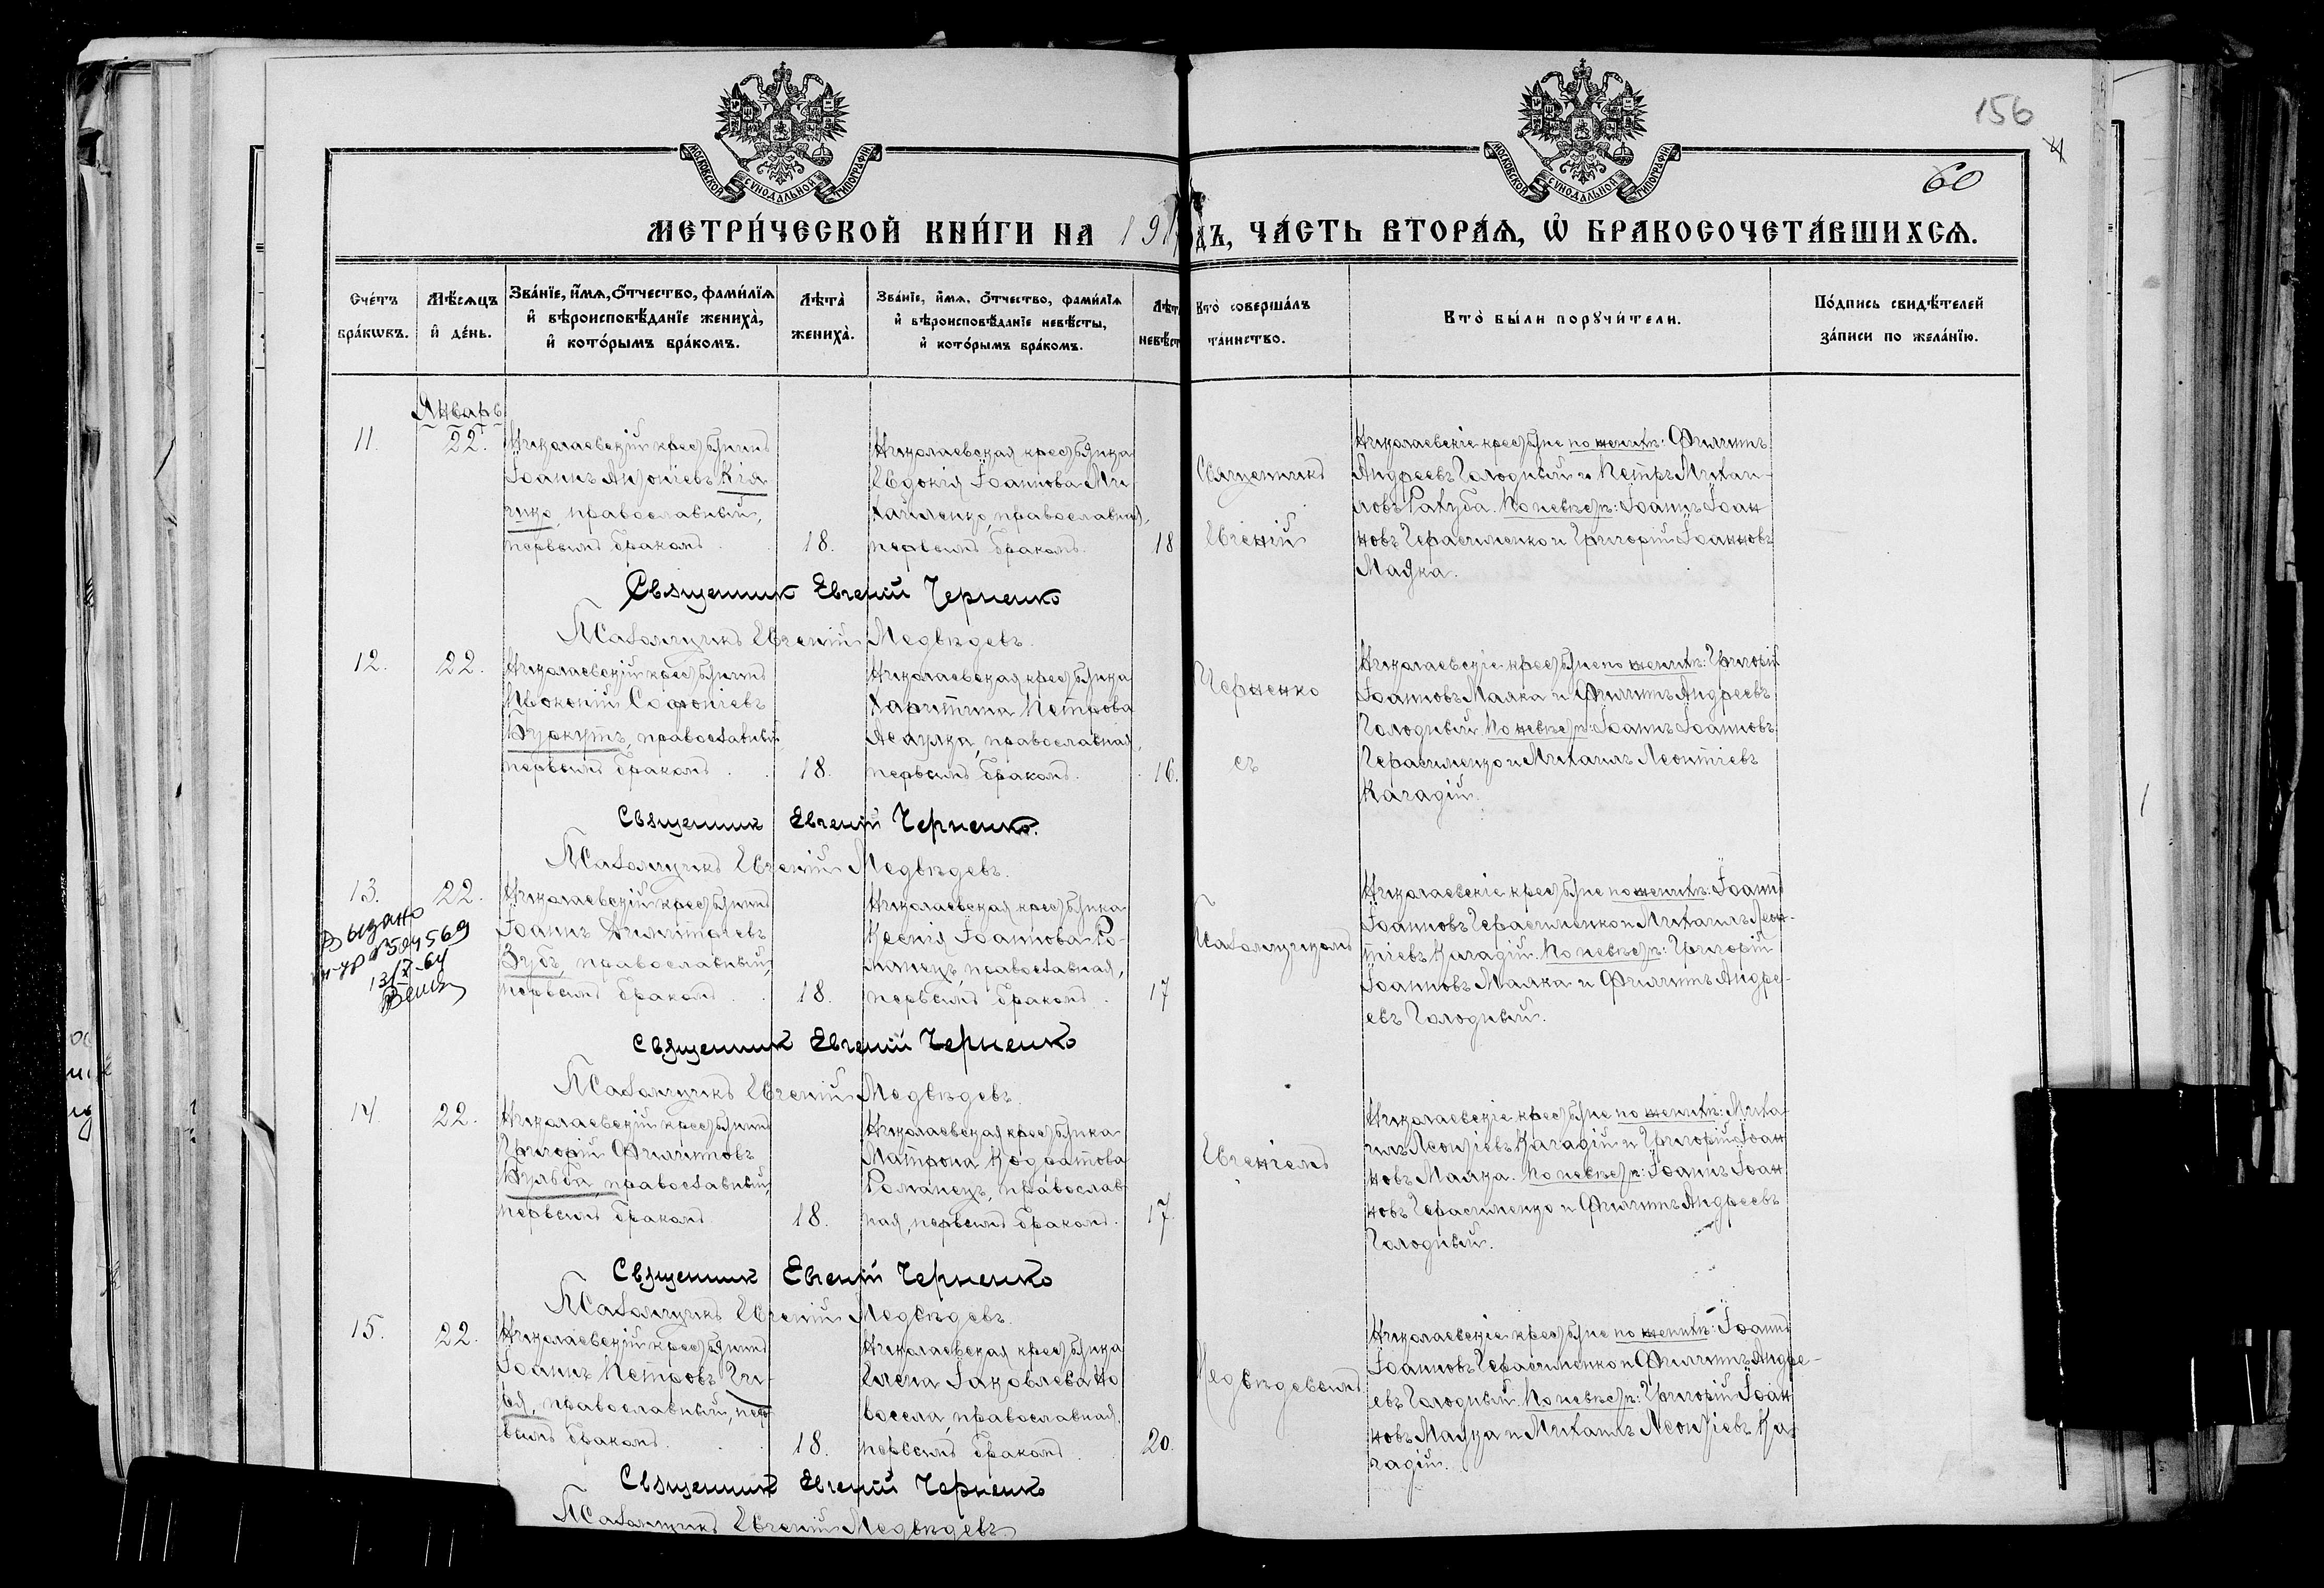 МОСКОВСКОЙ СѴНОДАЛЬНОЙ ТИПОГРАФІИ
МОСКОВСКОЙ СѴНОДАЛЬНОЙ ТИПОГРАФІИ
156
60
МЕТРИ́ЧЕСКОЙ КНИ́ГИ НА 191
ДЪ, ЧА́СТЬ ВТОРА́Я, Ѡ҆ БРАКОСОЧЕТА́ВШИХСЯ.
Сче́тъ бра́кѡвъ.
Мѣ́сяцъ и҆ де́нь.
Зва́нїе, и҆́мя, ѻ҆́тчество, фами́лїя и҆ вѣроисповѣ́данїе жениха̀, и҆ кото́рымъ бра́комъ.
Лѣта̀ жениха̀.
Зва́нїе, и҆́мя, ѻ҆́тчество, фами́лїя и҆ вѣроисповѣ́данїе невѣ́сты, и҆ кото́рымъ бра́комъ.
Лѣт невѣст
Кто̀ соверша́лъ та́инство.
Кто̀ бы́ли порꙋчи́тели.
По́дпись свидѣ́телей за́писи по жела́нїю.
Январь
11.
22.
Николаевскій крестьянинъ
Іоаннъ Антоніевъ Кія
чико, православный,
первымъ бракомъ
18.
Николаевская крестьянка
Евдокія Іоаннова Ми
хайленко, православная,
первымъ бракомъ.
18
Священникъ
Евгеній
Николаевскіе крестьяне по женихѣ: Филиппъ
Андреевъ Голодный и Петръ Михаи-
ловъ Рахуба. По невѣстѣ: Іоаннъ Іоан
новъ Герасименко и Григорій Іоанновъ
Маяка.
Священник Евгений Черненко
Псаломщикъ Евгеній Медвѣдевъ.
12.
22.
Николаевскій крестьянинъ
Прокопій Софроніевъ
Буркутъ, православный
первымъ бракомъ
18.
Николаевская крестьянка
Харитина Петрова
Ясаулка, православная,
первымъ бракомъ.
16.
Черненко
съ
Николаевскіе крестьяне по женихѣ: Григорій
Іоанновъ Маяка и Филиппъ Андреевъ
Голодный. По невѣстѣ: Іоаннъ Іоанновъ
Герасименко и Михаилъ Леонтіевъ
Карадій.
Священник Евгений Черненко.
Псаломщикъ Евгеній Медвѣдевъ.
13.
22.
Выдано
504569
Николаевскій крестьянинъ
Іоаннъ
Зубъ, православный,
первымъ бракомъ
18.
Николаевская крестьянка
Ксенія Іоаннова Ро-
манецъ, православная,
первымъ бракомъ.
17
Псаломщикомъ
Николаевскіе крестьяне по женихѣ: Іоаннъ
Іоанновъ Герасименко и Михаилъ Леон-
тіевъ Карадій. По невѣстѣ: Григорій
Іоанновъ Маяка и Филиппъ Андре-
евъ Голодный.
Священник Евгений Черненко
Псаломщикъ Евгеній Медвѣдевъ.
14.
22.
Николаевскій крестьянинъ
Григорій Филипповъ
Бульба, православный,
первымъ бракомъ
18.
Николаевская крестьянка
Матрона Кодратова
Романецъ, православ
ная, первымъ бракомъ.
17.
Евгеніемъ
Николаевскіе крестьяне по женихѣ: Миха-
илъ Леонтіевъ Карадій и Григорій Іоан
новъ Маяка. По невѣстѣ: Іоаннъ Іоан
новъ Герасименко и Филиппъ Андреевъ
Голодный.
Священник Евгений Черненко
Псаломщикъ Евгеній Медвѣдевъ.
15.
22.
Николаевскій крестьянинъ
Іоаннъ Петровъ
православный, пер
вымъ бракомъ.
18.
Николаевская крестьянка
Елена Іаковлева Но
восела, православная,
первымъ бракомъ.
20.
Медвѣдевымъ
Николаевскіе крестьяне по женихѣ: Іоаннъ
Іоанновъ Герасименко и Филиппъ Андре-
евъ Голодный. По невѣстѣ: Григорій Іоан
новъ Маяка и Михаилъ Леонтіевъ Ка
радій.
Священник Евгений Черненко
Псаломщикъ Евгеній Медвѣдевъ